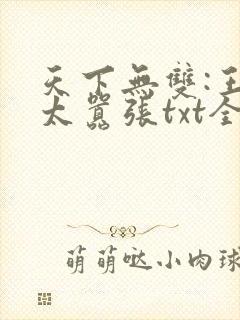 天下無雙:王
太囂張txt全
萌萌哒小肉球